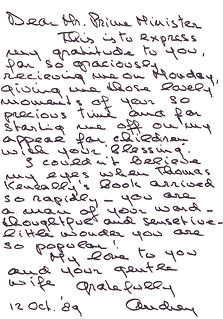 Dear Mr. Prime Minister
This is to express
my gratitude to you,
for so graciously
recieving me on Monday,
giving me those lovely
moments of your so
precious time and for
starting me off on my
appeal for children
with your blessing.
I couldn't believe
my eyes when Thomas
Keneally's book arrived
so rapidly - you are
a man of your word -
thoughtful and sensitive -
little wonder you are
so popular!
My love to you
and your gentle
wife gratefully
12 Oct. '89 Audrey